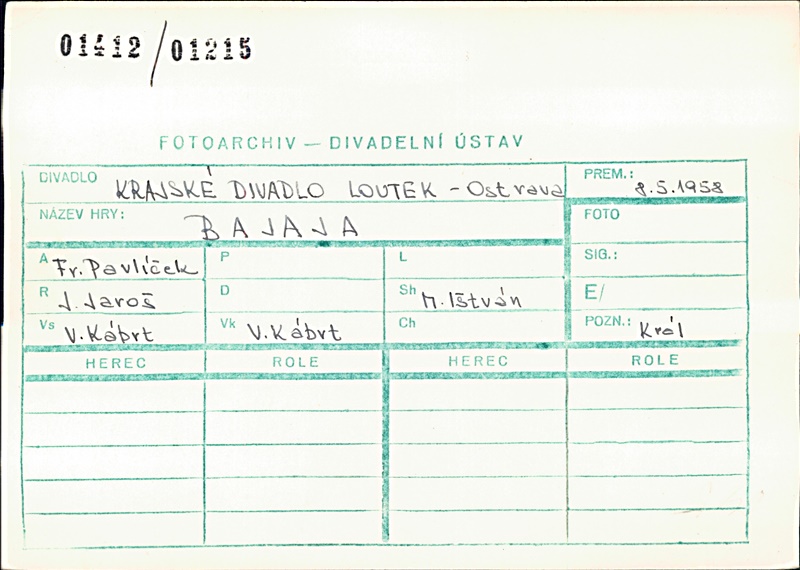 01412/01215
FOTOARCHIV — DIVADELNÍ ÚSTAV
DIVADLO KRAJSKÉ DIVADLO LOUTEK - Ostrava
PREM.: 8.5.1958
NÁZEV HRY: BAJAJA
FOTO
A Fr. Pavlíček
P
L
SIG.:
R J. Jaroš
D
Sh M. Ištván
E/
Vs V. Kábrt
Vk V. Kábrt
Ch
POZN.: Král
HEREC ROLE HEREC ROLE